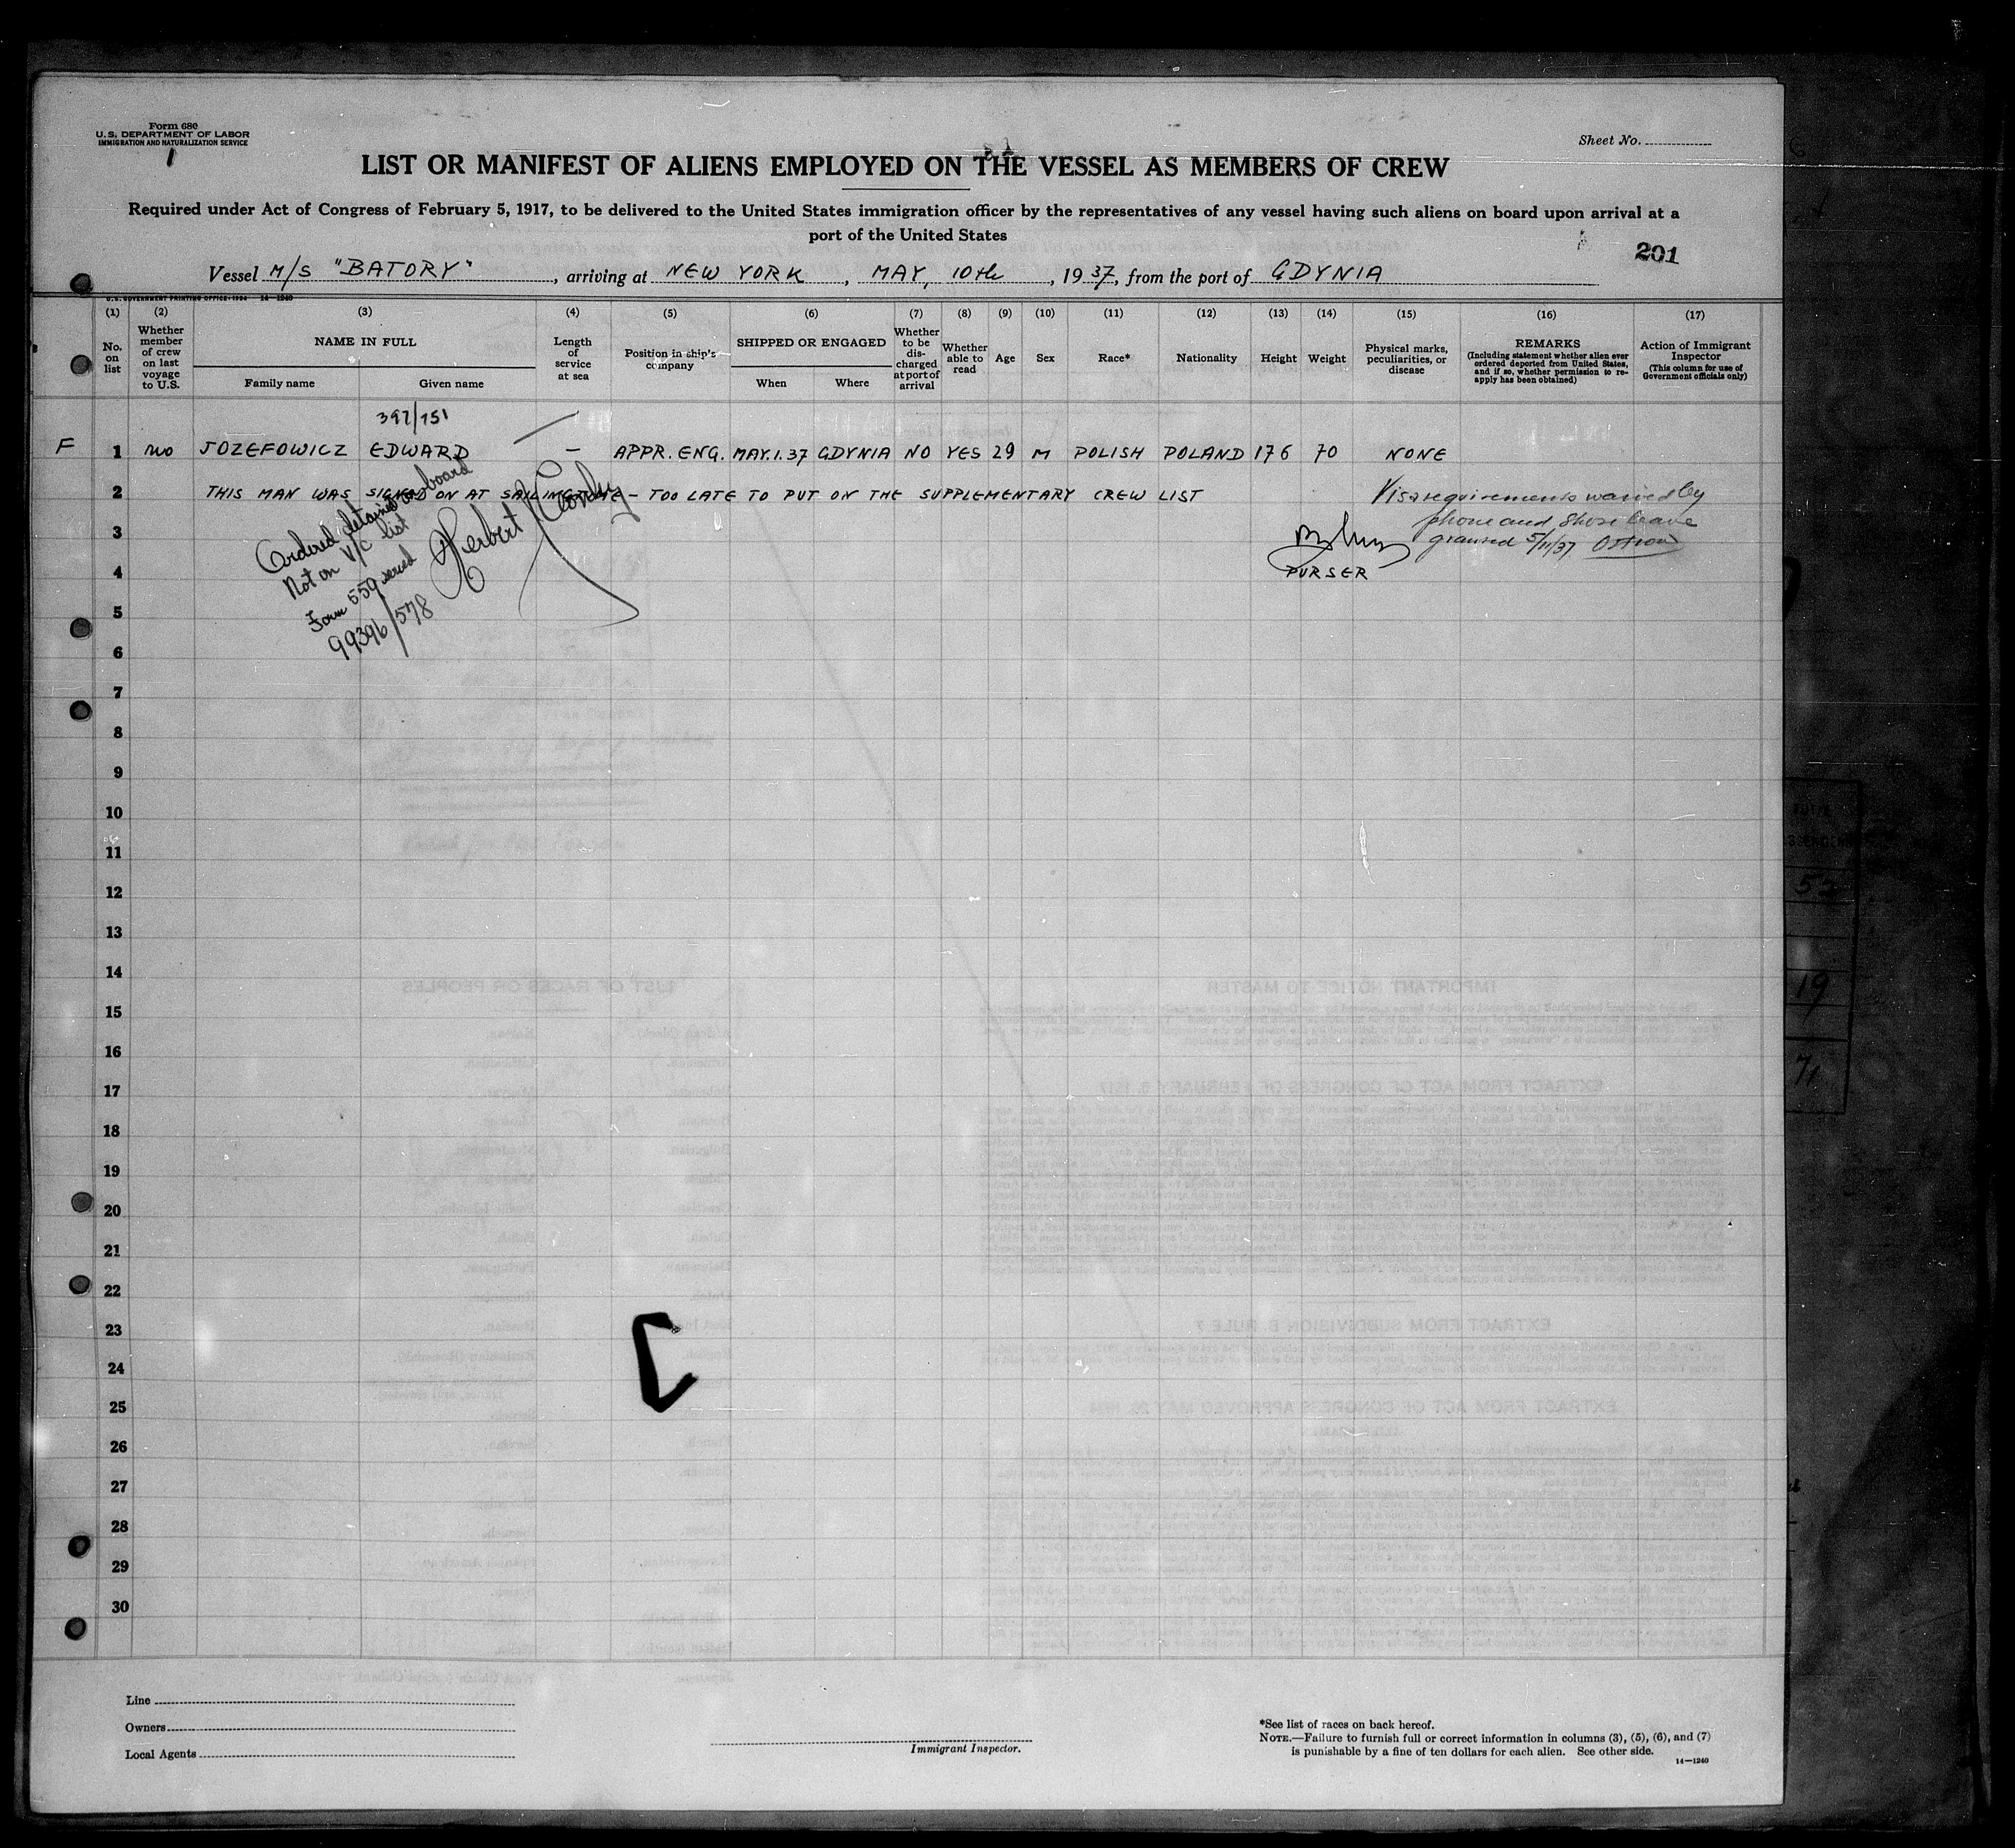 Form 680
U.S. DEPARTMENT OF LABOR
IMMIGRATION AND NATURALIZATION SERVICE
1
Sheet No.
LIST OR MANIFEST OF ALIENS EMPLOYED ON THE VESSEL AS MEMBERS OF CREW
Required under Act of Congress of February 5, 1917, to be delivered to the United States immigration officer by the representatives of any vessel having such aliens on board upon arrival at a
port of the United States
201
Vessel M/S "BATORY", arriving at NEW YORK, MAY, 10th, 1937, from the port of GDYNIA
U.S. GOVERNMENT PRINTING OFFICE: 1934 14—1240
(1) (2) (3) (4) (5) (6) (7) (8) (9) (10) (11) (12) (13) (14) (15) (16) (17)
No. on list
Whether member of crew on last voyage to U.S.
NAME IN FULL
Family name Given name
Length of service at sea
Position in ship's company
SHIPPED OR ENGAGED
When Where
Whether to be discharged at port of arrival
Whether able to read
Age
Sex
Race*
Nationality
Height
Weight
Physical marks, peculiarities, or disease
REMARKS
(Including statement whether alien ever ordered deported from United States, and if so, whether permission to re-apply has been obtained)
Action of Immigrant Inspector
(This column for use of Government officials only)
397/151
F 1 no JOZEFOWICZ EDWARD — APPR. ENG. MAY.1.37 GDYNIA NO YES 29 M POLISH POLAND 176 70 NONE
2 THIS MAN WAS SIGNED ON AT SAILING TIME – TOO LATE TO PUT ON THE SUPPLEMENTARY CREW LIST
Visa requirements waived by
phone and shore leave
granted 5/11/37.
PURSER
Ordered detained on board
Not on V/C list
Form 559 served
99396/578
Herbert
3
4
5
6
7
8
9
10
11
12
13
14
15
16
17
18
19
20
21
22
23
24
25
26
27
28
29
30
Line
Owners
Local Agents
Immigrant Inspector.
*See list of races on back hereof.
NOTE.—Failure to furnish full or correct information in columns (3), (5), (6), and (7)
is punishable by a fine of ten dollars for each alien. See other side.
14—1240